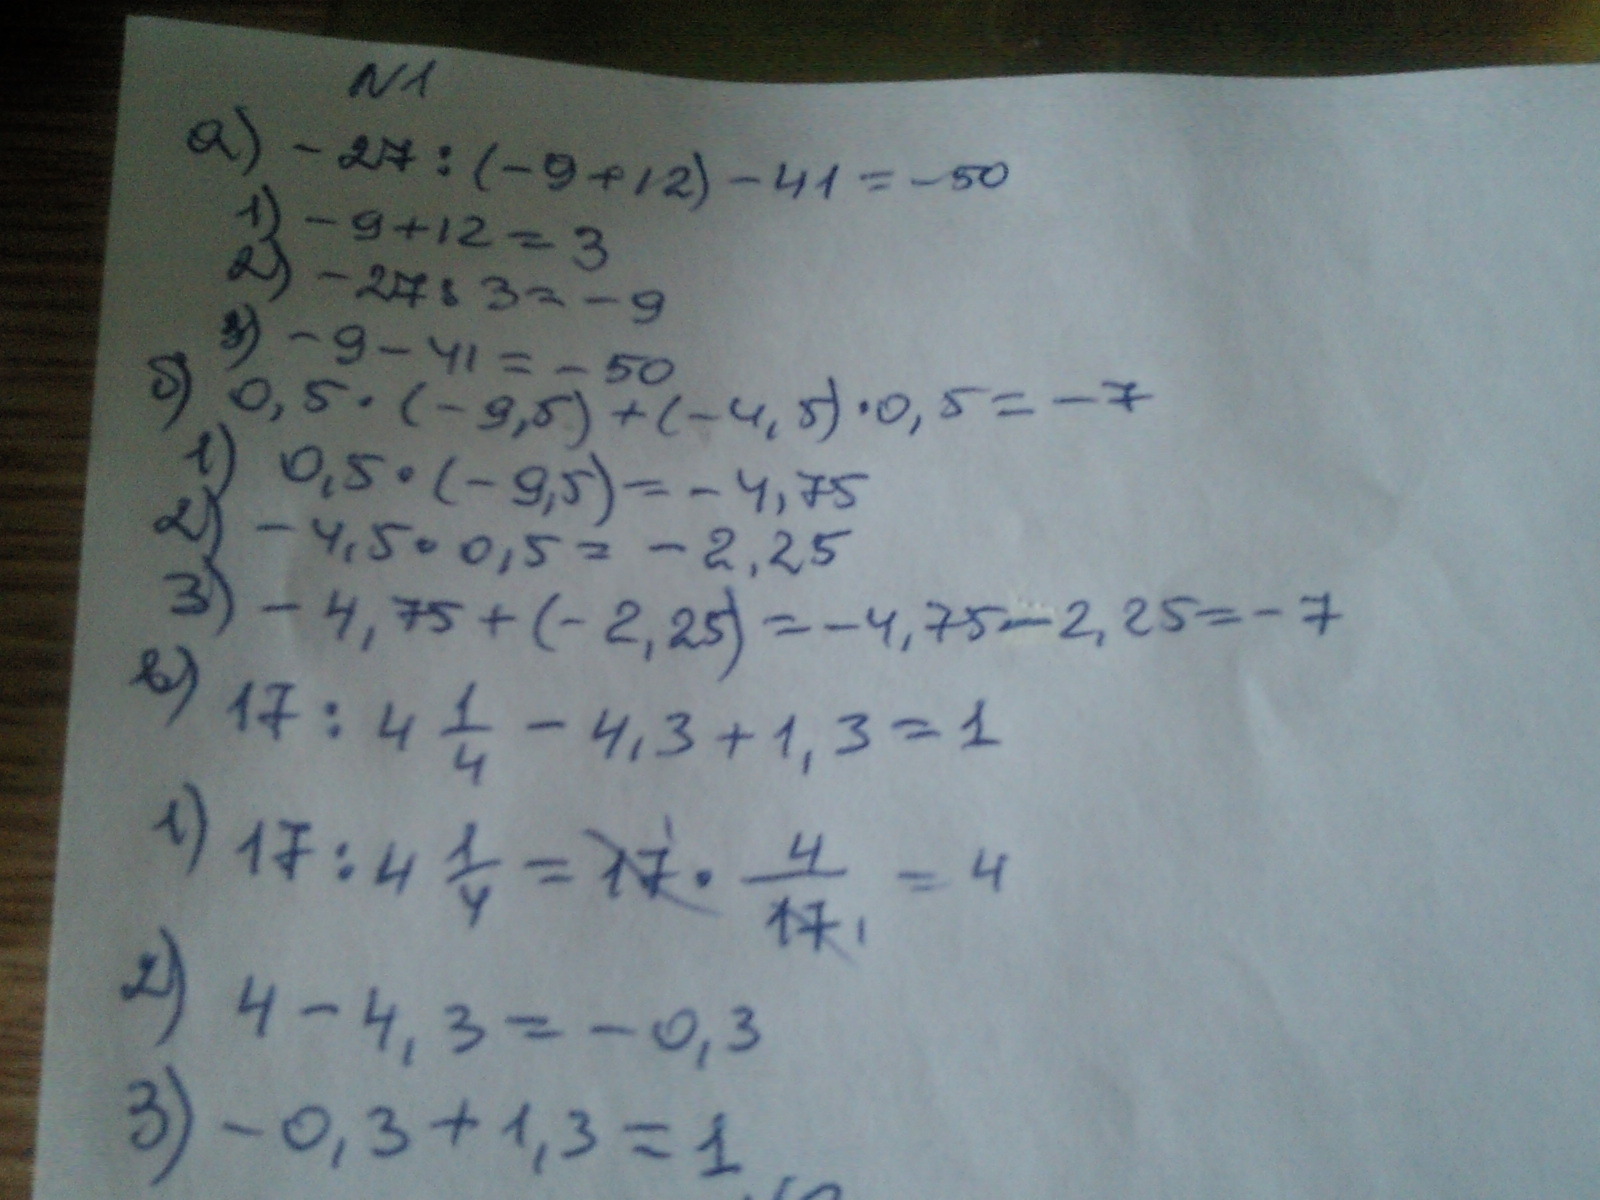 N1
а) -27 : (-9+12) - 41 = -50
1) -9+12 = 3
2) -27 : 3 = -9
3) -9 - 41 = -50
б) 0,5 · (-9,5) + (-4,5) · 0,5 = -7
1) 0,5 · (-9,5) = -4,75
2) -4,5 · 0,5 = -2,25
3) -4,75 + (-2,25) = -4,75 - 2,25 = -7
в) 17 : 4 1/4 - 4,3 + 1,3 = 1
1) 17 : 4 1/4 = 17 1 · 4/17 1 = 4
2) 4 - 4,3 = -0,3
3) -0,3 + 1,3 = 1